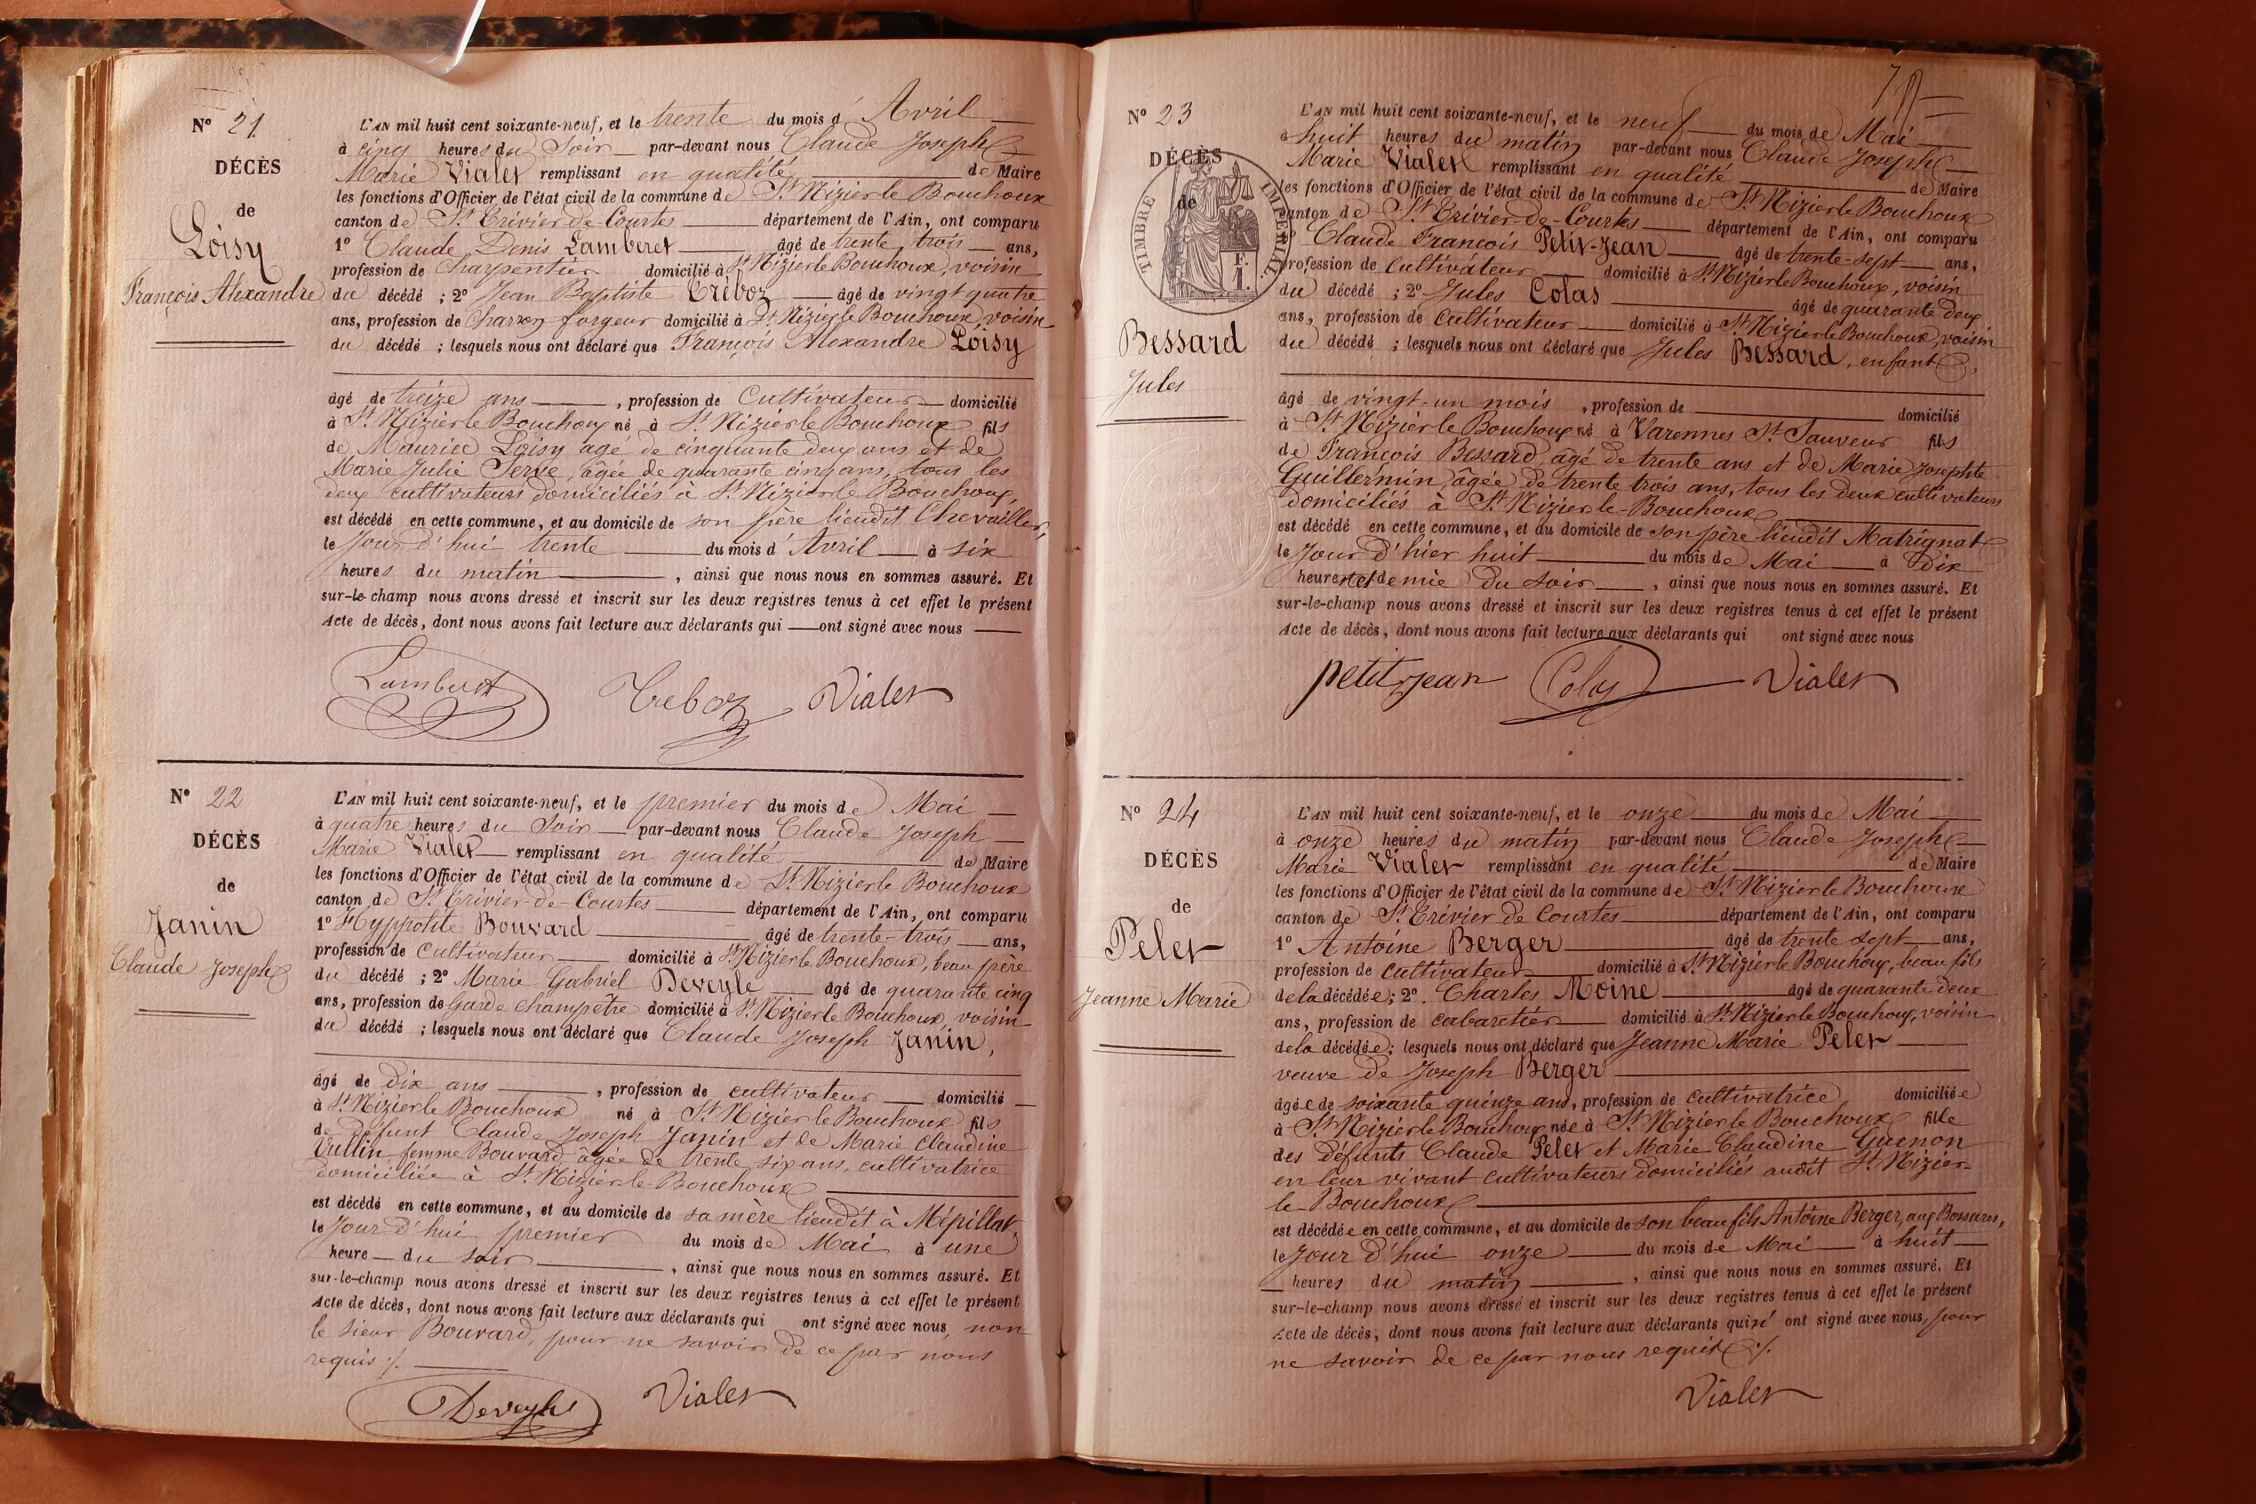 Nº 21
DÉCÈS
de
Loisy
François Alexandre
L'AN mil huit cent soixante-neuf, et le trente du mois d' Avril
à cinq heures du Soir par-devant nous Claude Joseph
Marie Vialet remplissant en qualité de Maire
les fonctions d'Officier de l'état civil de la commune de St Nizier le Bouchoux
canton de St Trivier-de-Courtes département de l'Ain, ont comparu
1º Claude Denis Lamberet âgé de trente trois ans,
profession de Charpentier domicilié à St Nizier le Bouchoux, voisin
du décédé ; 2º Jean Baptiste Tréboz âgé de vingt quatre
ans, profession de Charron forgeur domicilié à St Nizier le Bouchoux, voisin
du décédé ; lesquels nous ont déclaré que François Alexandre Loisy
âgé de treize ans , profession de Cultivateur domicilié
à St Nizier le Bouchoux né à St Nizier le Bouchoux fils
de Maurice Loisy agé de cinquante deux ans et de
Marie Julie Serve, âgée de quarante cinq ans, tous les
deux cultivateurs domiciliés à St Nizier le Bouchoux,
est décédé en cette commune, et au domicile de son père lieudit Chevailler,
le Jour d'hui trente du mois d' Avril à six
heures du matin , ainsi que nous nous en sommes assuré. Et
sur-le-champ nous avons dressé et inscrit sur les deux registres tenus à cet effet le présent
Acte de décès, dont nous avons fait lecture aux déclarants qui ont signé avec nous
Lamberet Treboz Vialet
Nº 22
DÉCÈS
de
Janin
Claude Joseph
L'AN mil huit cent soixante-neuf, et le premier du mois de Mai
à quatre heures du Soir par-devant nous Claude Joseph
Marie Vialet remplissant en qualité de Maire
les fonctions d'Officier de l'état civil de la commune de St Nizier le Bouchoux
canton de St Trivier-de-Courtes département de l'Ain, ont comparu
1º Hyppolite Bouvard âgé de trente-trois ans,
profession de Cultivateur domicilié à St Nizier le Bouchoux, beau père
du décédé ; 2º Marie Gabriel Deveyle âgé de quarante cinq
ans, profession de Garde Champêtre domicilié à St Nizier le Bouchoux, voisin
du décédé ; lesquels nous ont déclaré que Claude Joseph Janin,
âgé de dix ans , profession de cultivateur domicilié
à St Nizier le Bouchoux né à St Nizier le Bouchoux fils
de défunt Claude Joseph Janin et de Marie Claudine
Vullin femme Bouvard âgée de trente six ans, cultivatrice
domiciliée à St Nizier le Bouchoux
est décédé en cette commune, et au domicile de sa mère lieudit à Mépillat,
le Jour d'hui premier du mois de Mai à une
heure du soir , ainsi que nous nous en sommes assuré. Et
sur-le-champ nous avons dressé et inscrit sur les deux registres tenus à cet effet le présent
Acte de décès, dont nous avons fait lecture aux déclarants qui ont signé avec nous, non
le sieur Bouvard, pour ne savoir de ce par nous
requis ./.
Deveyle Vialet
Nº 23
DÉCÈS
de
TIMBRE IMPÉRIAL
F.
1.
Bessard
Jules
L'AN mil huit cent soixante-neuf, et le neuf du mois de Mai
à huit heures du matin par-devant nous Claude Joseph
Marie Vialet remplissant en qualité de Maire
les fonctions d'Officier de l'état civil de la commune de St Nizier le Bouchoux
canton de St Trivier-de-Courtes département de l'Ain, ont comparu
1º Claude François Petit-Jean âgé de trente-sept ans,
profession de Cultivateur domicilié à St Nizier le Bouchoux, voisin
du décédé ; 2º Jules Colas âgé de quarante deux
ans, profession de Cultivateur domicilié à St Nizier le Bouchoux, voisin
du décédé ; lesquels nous ont déclaré que Jules Bessard, enfant,
âgé de vingt-un mois , profession de domicilié
à St Nizier le Bouchoux né à Varennes St Sauveur fils
de François Bessard, âgé de trente ans et de Marie Josephte
Guillermin, âgée de trente trois ans, tous les deux cultivateurs
domiciliés à St Nizier-le-Bouchoux
est décédé en cette commune, et au domicile de son père lieudit Matrignat
le Jour d'hier huit du mois de Mai à Dix
heures et demie du soir , ainsi que nous nous en sommes assuré. Et
sur-le-champ nous avons dressé et inscrit sur les deux registres tenus à cet effet le présent
Acte de décès, dont nous avons fait lecture aux déclarants qui ont signé avec nous
petitjean Colas Vialet
Nº 24
DÉCÈS
de
Pelet
Jeanne Marie
L'AN mil huit cent soixante-neuf, et le onze du mois de Mai
à onze heures du matin par-devant nous Claude Joseph
Marie Vialet remplissant en qualité de Maire
les fonctions d'Officier de l'état civil de la commune de St Nizier le Bouchoux
canton de St Trivier de Courtes département de l'Ain, ont comparu
1º Antoine Berger âgé de trente sept ans,
profession de cultivateur domicilié à St Nizier le Bouchoux, beau fils
de la décédée ; 2º. Charles Moine âgé de quarante deux
ans, profession de cabaretier domicilié à St Nizier le Bouchoux, voisin
de la décédée ; lesquels nous ont déclaré que Jeanne Marie Pelet
veuve de Joseph Berger
âgée de soixante quinze ans, profession de cultivatrice domiciliée
à St Nizier le Bouchoux née à St Nizier le Bouchoux fille
des défunts Claude Pelet et Marie Claudine Guenon
en leur vivant cultivateurs domiciliés audit St Nizier-
le-Bouchoux
est décédée en cette commune, et au domicile de son beau fils Antoine Berger, aux Bossures,
le Jour d'hui onze du mois de Mai à huit
heures du matin , ainsi que nous nous en sommes assuré. Et
sur-le-champ nous avons dressé et inscrit sur les deux registres tenus à cet effet le présent
Acte de décès, dont nous avons fait lecture aux déclarants qui n' ont signé avec nous, pour
ne savoir de ce par nous requis ./.
Vialet